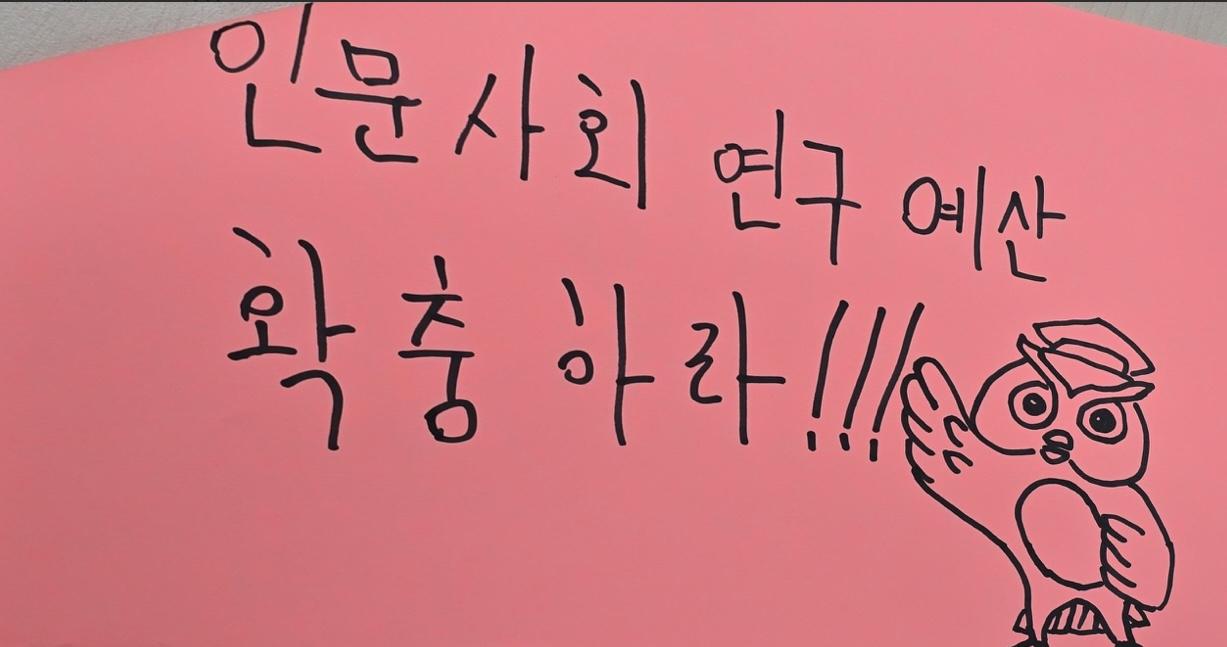 인문사회 연구 예산
확충하라!!!